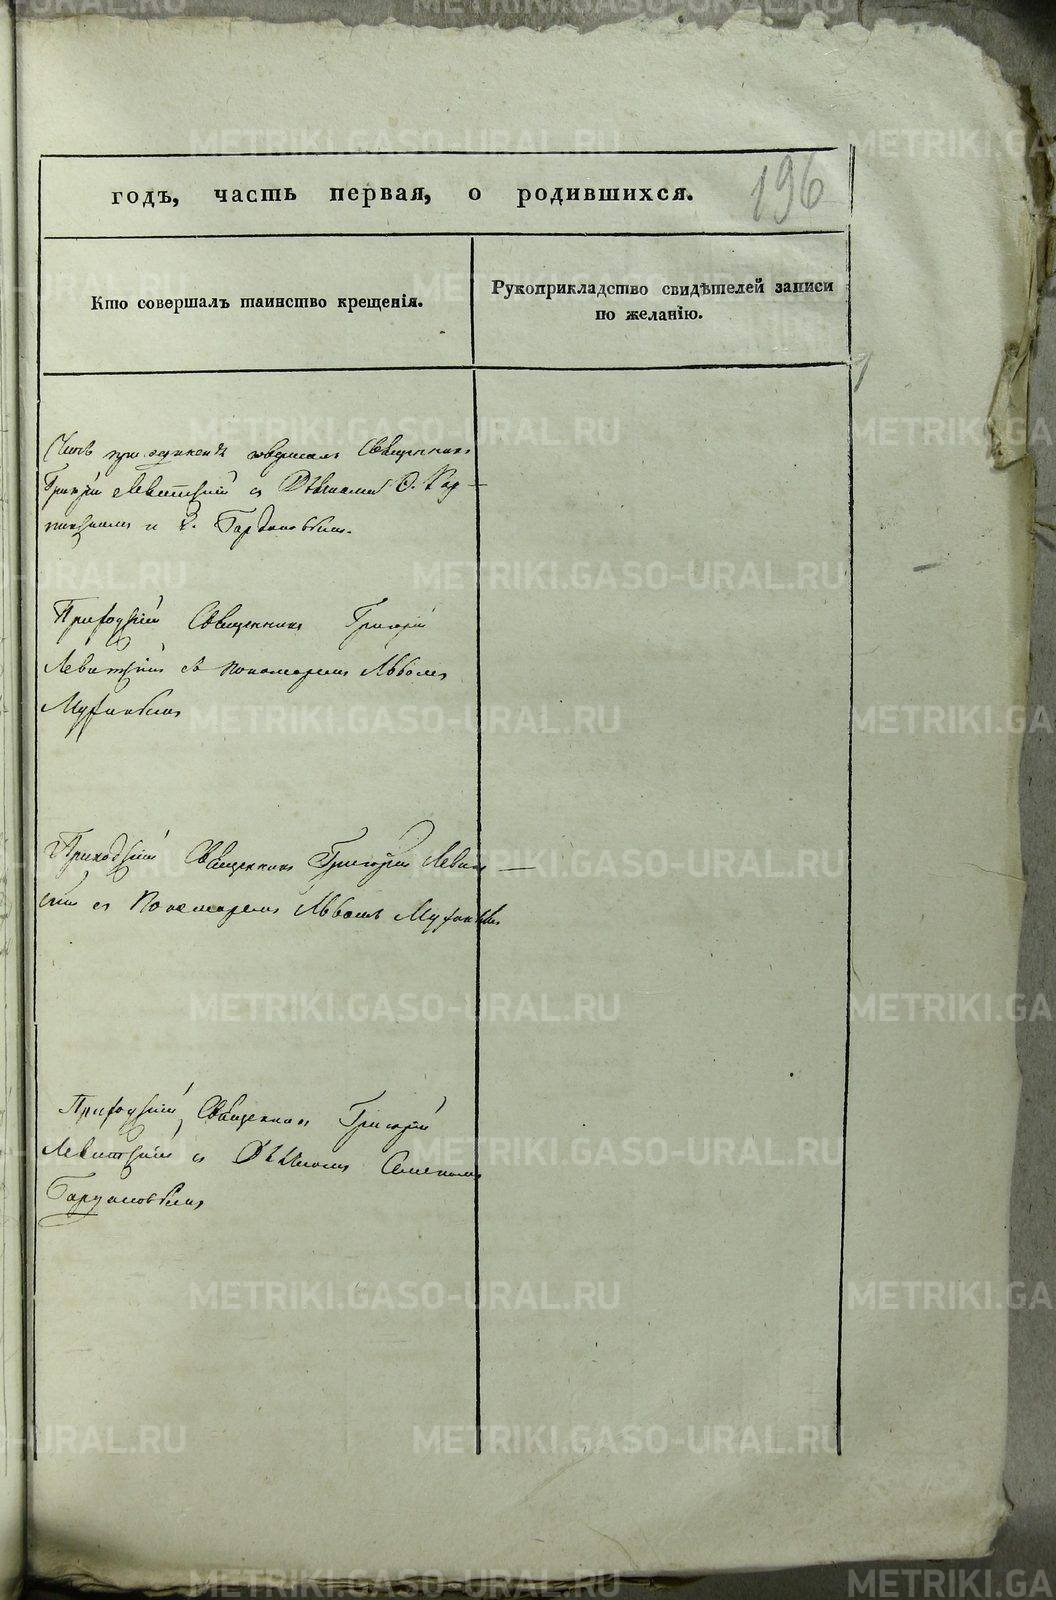 годъ, часть первая, о родившихся.
196
Кто совершалъ таинство крещенія.
Рукоприкладство свидѣтелей записи
по желанію.
Чинъ совершалъ Священникъ
Григорій Левитскій съ Дьячками
и Гардановымъ.
Приходскій Священникъ Григорій
Левитскій съ пономаремъ Львомъ
Приходскій Священникъ Григорій Левит
скій съ Пономаремъ Львомъ
Приходскій Священникъ Григорій
Левитскій съ Дьячкомъ Семеномъ
METRIKI.GASO-URAL.RU